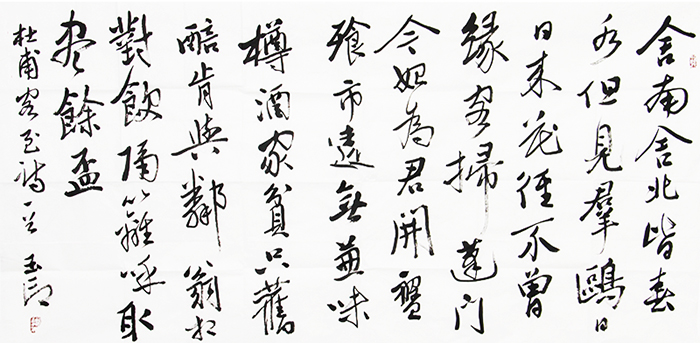 舍南舍北皆春
水但見羣鷗日
日來花徑不曾
緣客掃蓬门
今始為君開盤
飧市遠無兼味
樽酒家貧只舊
醅肯與鄰翁相
對飲隔籬呼取
盡餘盃
杜甫客至詩一首